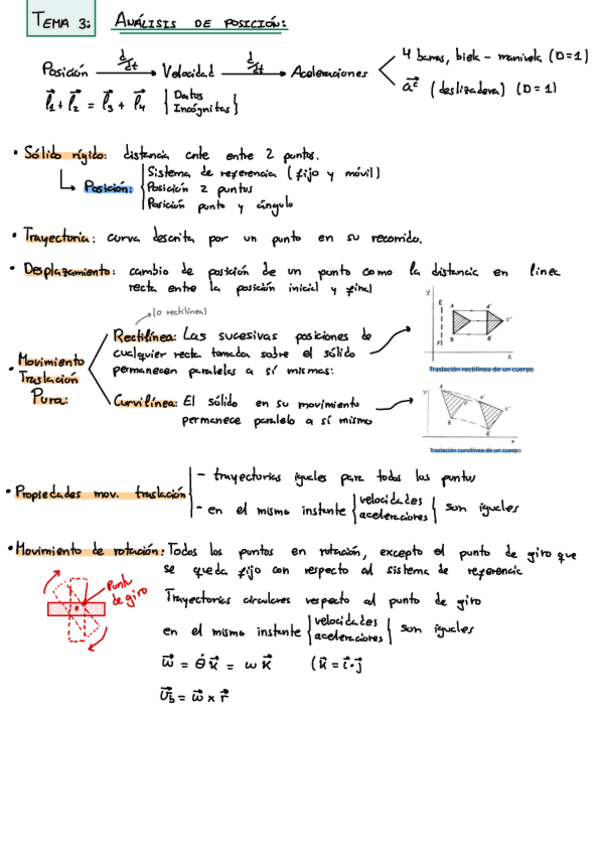 TEMA 3: ANÁLISIS DE POSICIÓN:
Posición d/dt → Velocidad d/dt → Aceleraciones
4 barras, biela - manivela (D=1)
a⃗ᶜ (deslizadera) (D=1)
l⃗₁ + l⃗₂ = l⃗₃ + l⃗₄ { Datos
Incógnitas }
• Sólido rígido: distancia cnte entre 2 puntos.
↳ Posición: Sistema de referencia (fijo y móvil)
Posición 2 puntos
Posición punto y ángulo
• Trayectoria: curva descrita por un punto en su recorrido.
• Desplazamiento: cambio de posición de un punto como la distancia en linea
recta entre la posición inicial y final
(o rectilínea)
• Movimiento
Traslación
Pura:
Rectilínea: Las sucesivas posiciones de
cualquier recta tomada sobre el sólido
permanecen paralelas a sí mismas:
Y
E
A
A'
C'
F
B
B'
X
Traslación rectilínea de un cuerpo
Curvilínea: El sólido en su movimiento
permanece paralelo a sí mismo
Y
A
A'
C'
B
B'
X
Traslación curvilínea de un cuerpo
• Propiedades mov. traslación
- trayectorias iguales para todos los puntos
- en el mismo instante { velocidades
aceleraciones } son iguales
• Movimiento de rotación: Todos los puntos en rotación, excepto el punto de giro que
se queda fijo con respecto al sistema de referencia
Punto
de giro
Trayectorias circulares respecto al punto de giro
en el mismo instante { velocidades
aceleraciones } son iguales
w⃗ = θ̇ k⃗ = w k⃗ (k⃗ = i⃗·j⃗
v⃗_b = w⃗ × r⃗